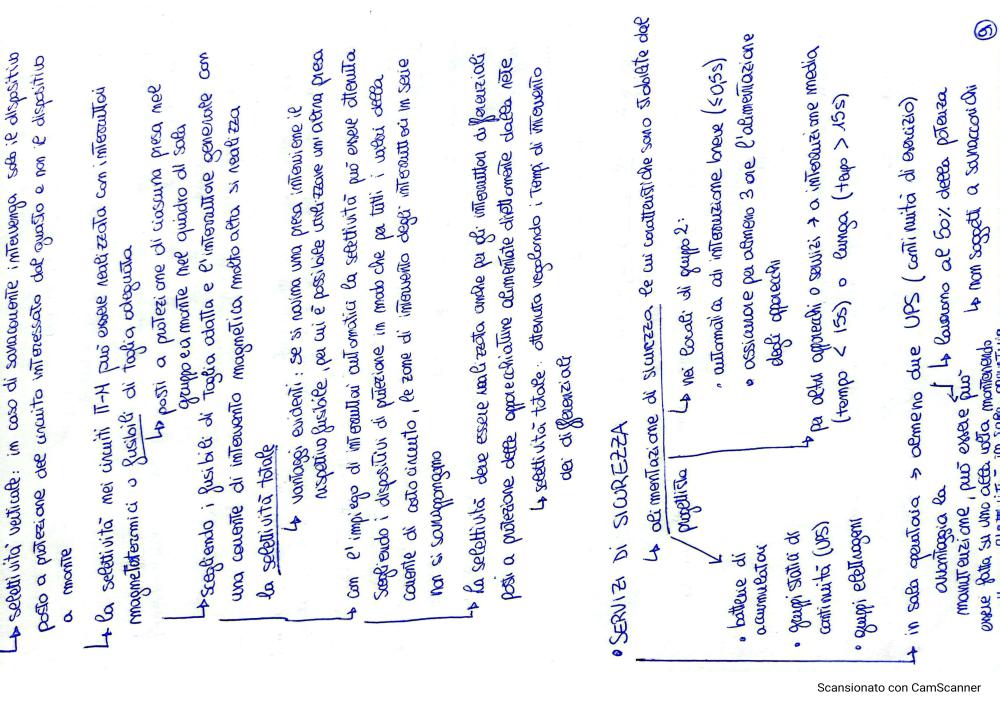 ↳ selettività verticale: in caso di sovracorrente intervenga solo il dispositivo
posto a protezione del circuito interessato dal guasto e non il dispositivo
a monte
↳ la selettività nei circuiti IT-M può essere realizzata con interruttori
magnetotermici o fusibili di taglia adeguata
↳ posti a protezione di ciascuna presa nel
gruppo e a monte nel quadro di sala
↳ scegliendo i fusibili di taglia adatta e l'interruttore generale con
una corrente di intervento magnetica molto alta si realizza
la selettività totale
↳ vantaggi evidenti: se si rovina una presa interviene il
rispettivo fusibile, per cui è possibile utilizzare un'altra presa
↳ con l'impiego di interruttori automatici la selettività può essere ottenuta
scegliendo i dispositivi di protezione in modo che per tutti i valori della
corrente di corto circuito, le zone di intervento degli interruttori in serie
non si sovrappongano
↳ la selettività deve essere realizzata anche per gli interruttori differenziali
posti a protezione delle apparecchiature alimentate direttamente dalla rete
↳ selettività totale: ottenuta regolando i tempi di intervento
dei differenziali
• SERVIZI DI SICUREZZA
↳ alimentazione di sicurezza le cui caratteristiche sono stabilite dal
progettista
↳ nei locali di gruppo 2:
• automatica ad interruzione breve (≤0,5s)
• assicurare per almeno 3 ore l'alimentazione
degli apparecchi
↳ per altri apparecchi o servizi → a interruzione media
(tempo < 15s) o lunga (tempo > 15s)
• batterie di
accumulatori
• gruppi statici di
continuità (UPS)
• gruppi elettrogeni
↳ in sala operatoria → almeno due UPS (continuità di esercizio)
↳ lavorano al 60% della potenza
↳ non soggetti a sovraccarichi
avvantaggia la
manutenzione, può essere può
essere fatta su uno alla volta mantenendo
9
Scansionato con CamScanner